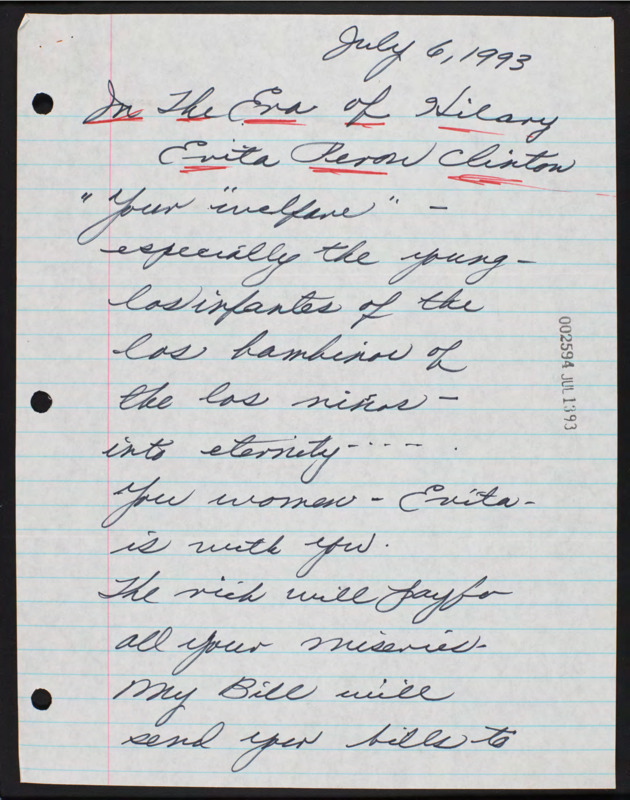 July 6, 1993
In The Era of Hilary
Evita Peron Clinton
"Your "welfare" -
especially the young -
los infantes of the
los bambinos of
the los niños -
into eternity - - - - .
You women - Evita -
is with you.
The rich will pay fo
all your miseries.
My Bill will
send your bills to
002594 JUL 13 93